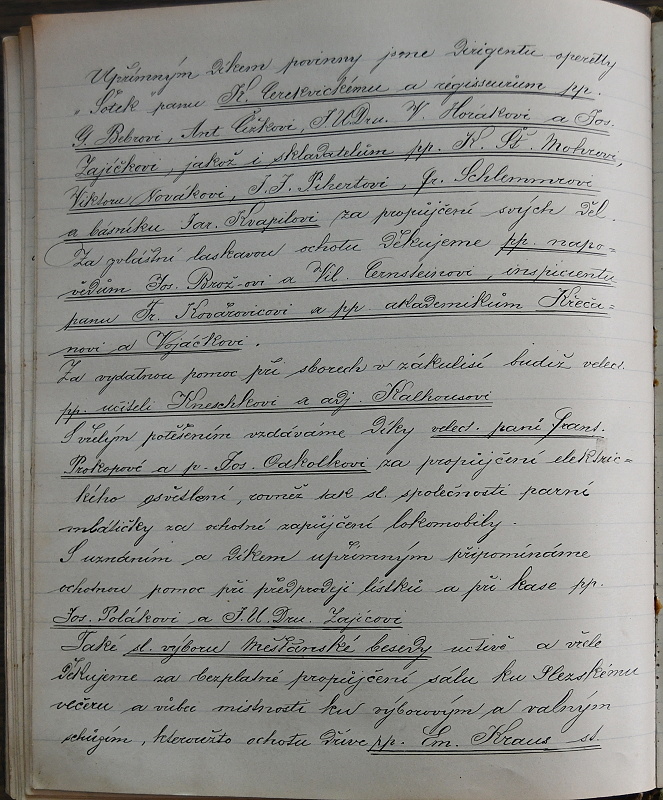 Upřímným díkem povinny jsme dirigentu operetty
„Šotek" panu K. Cerekvickému a régisseurům pp.
G. Bebrovi, Ant. Čížkovi, J.U.Dru. V. Horákovi a Jos.
Zajíčkovi, jakož i skladatelům pp. K. St. Mohrovi,
Viktoru Novákovi, J. J. Pihertovi, Fr. Schlemmrovi
a básníku Jar. Kvapilovi za propůjčení svých děl.
Za zvláštní laskavou ochotu děkujeme pp. napo=
vědům Jos. Brož-ovi a Vil. Cernsteinovi, inspicientu
panu Fr. Kovářovicovi a pp. akademikům Křeča=
novi a Vojáčkovi.
Za vydatnou pomoc při sborech v zákulisí budiž velect.
pp. učiteli Kneschkovi a adj. Kalhousovi
S vřelým potěšením vzdáváme díky velect. paní Frant.
Prokopové a p. Jos. Odkolkovi za propůjčení elektric=
kého osvětlení, rovněž tak sl. společnosti parní
mlátičky za ochotné zapůjčení lokomobily.
S uznáním a díkem upřímným připomínáme
ochotnou pomoc při předprodeji lístků a při kase pp.
Jos. Polákovi a J.U.Dru. Zajícovi
Také sl. výboru Měšťanské besedy uctivě a vřele
děkujeme za bezplatné propůjčení sálu ku Slezskému
večeru a vůbec místností ku výborovým a valným
schůzím, kteroužto ochotu dříve pp. Em. Kraus st.